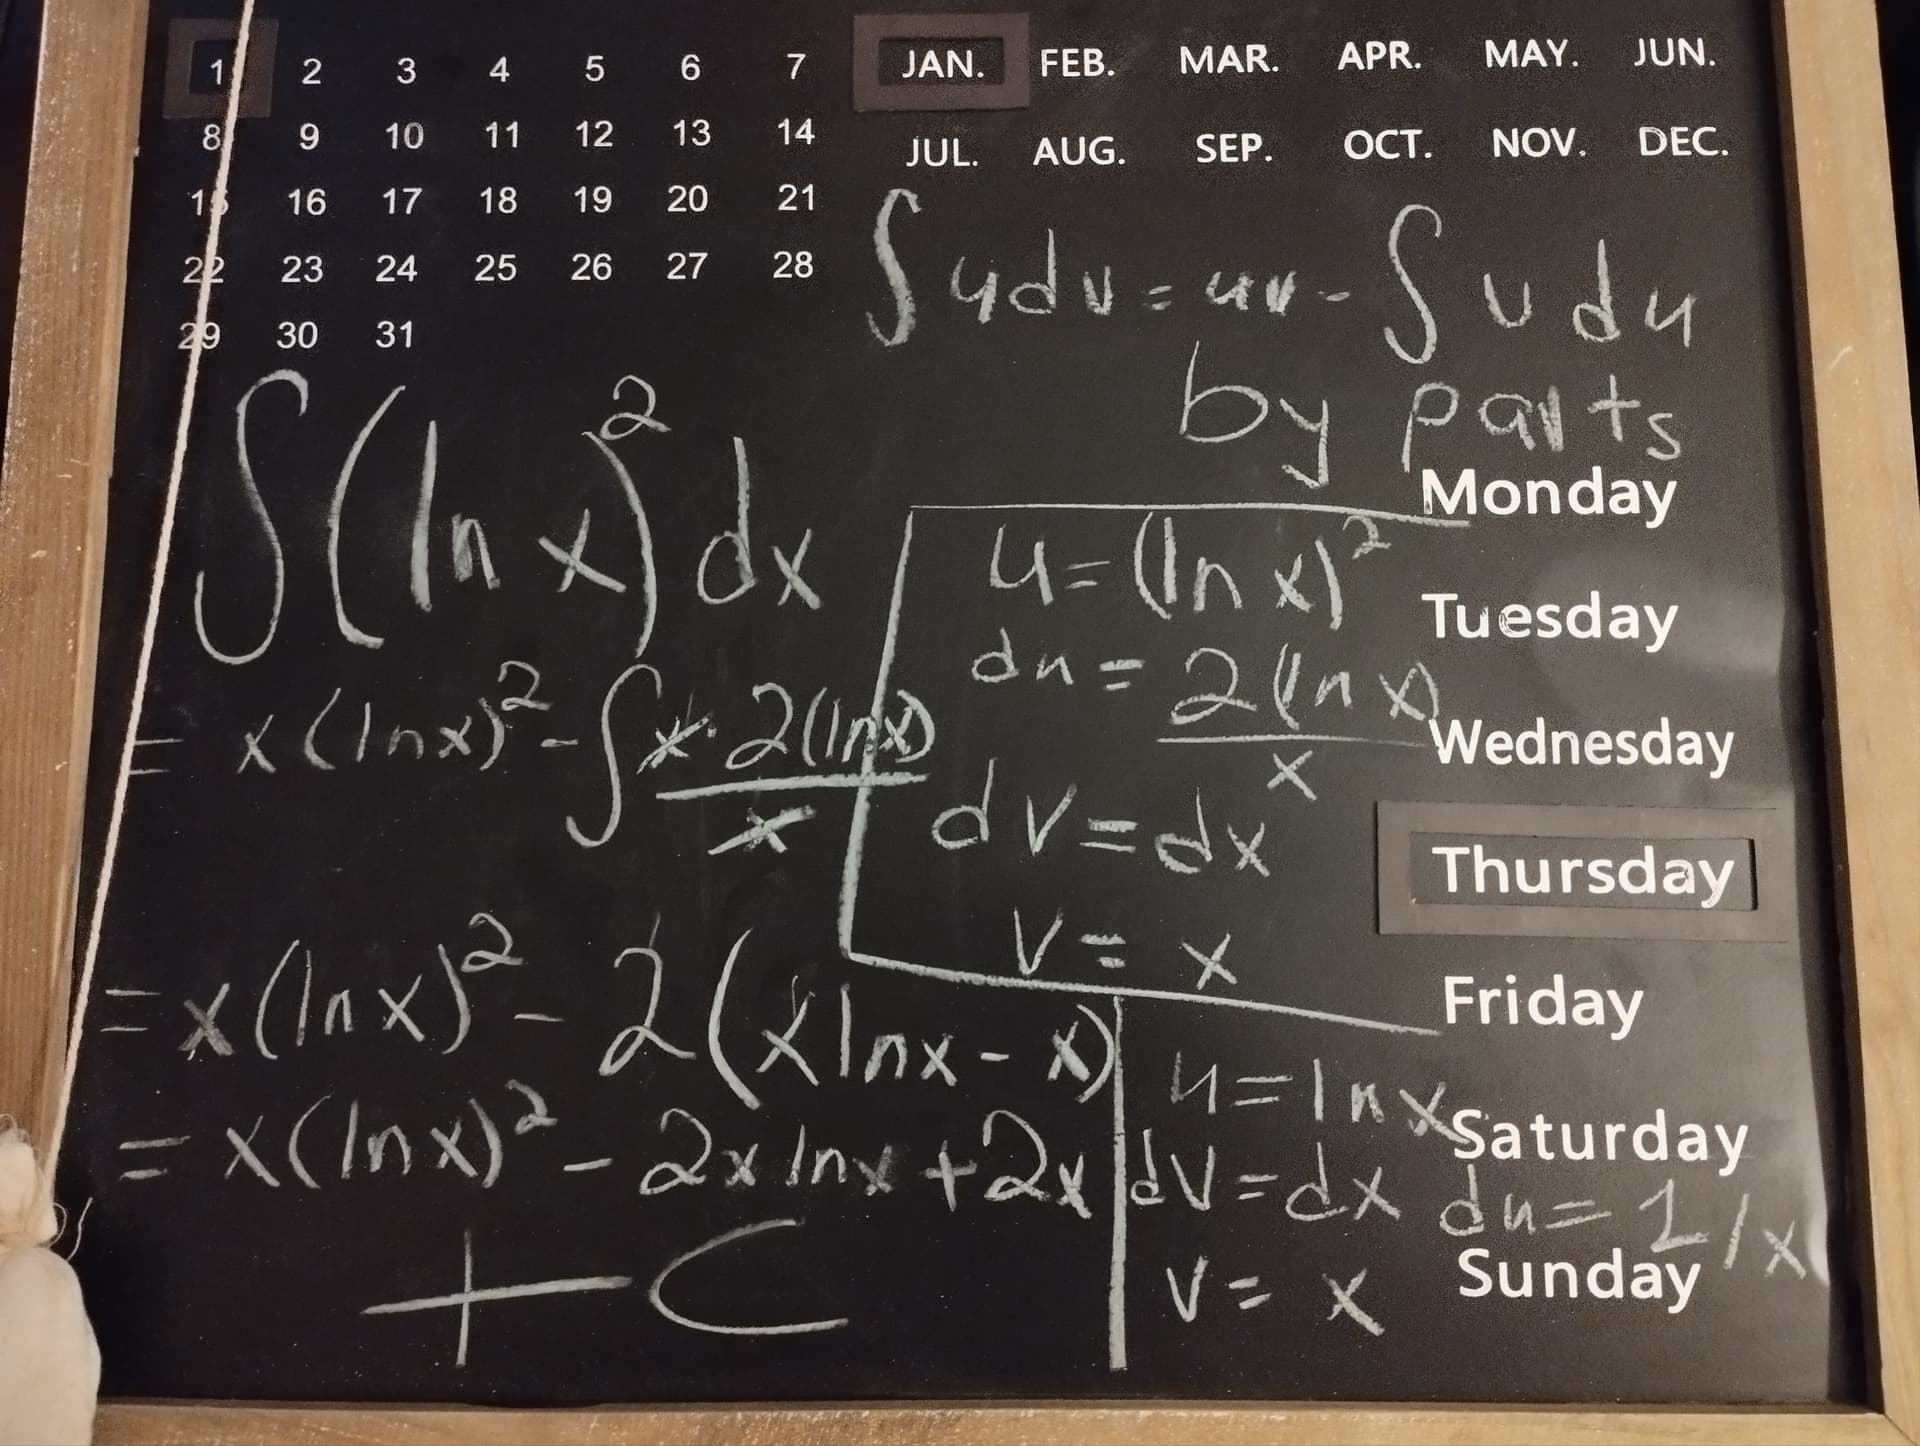 1 2 3 4 5 6 7
8 9 10 11 12 13 14
15 16 17 18 19 20 21
22 23 24 25 26 27 28
29 30 31
JAN. FEB. MAR. APR. MAY. JUN.
JUL. AUG. SEP. OCT. NOV. DEC.
∫udv = uv - ∫vdu
by parts
∫(ln x)² dx
= x(lnx)² - ∫x·2(lnx)/x
= x(lnx)² - 2(xlnx - x)
= x(lnx)² - 2x lnx + 2x
+ C
u = (ln x)²
du = 2(ln x)/x
dv = dx
v = x
u = ln x
dv = dx du = 1/x
v = x
Monday
Tuesday
Wednesday
Thursday
Friday
Saturday
Sunday